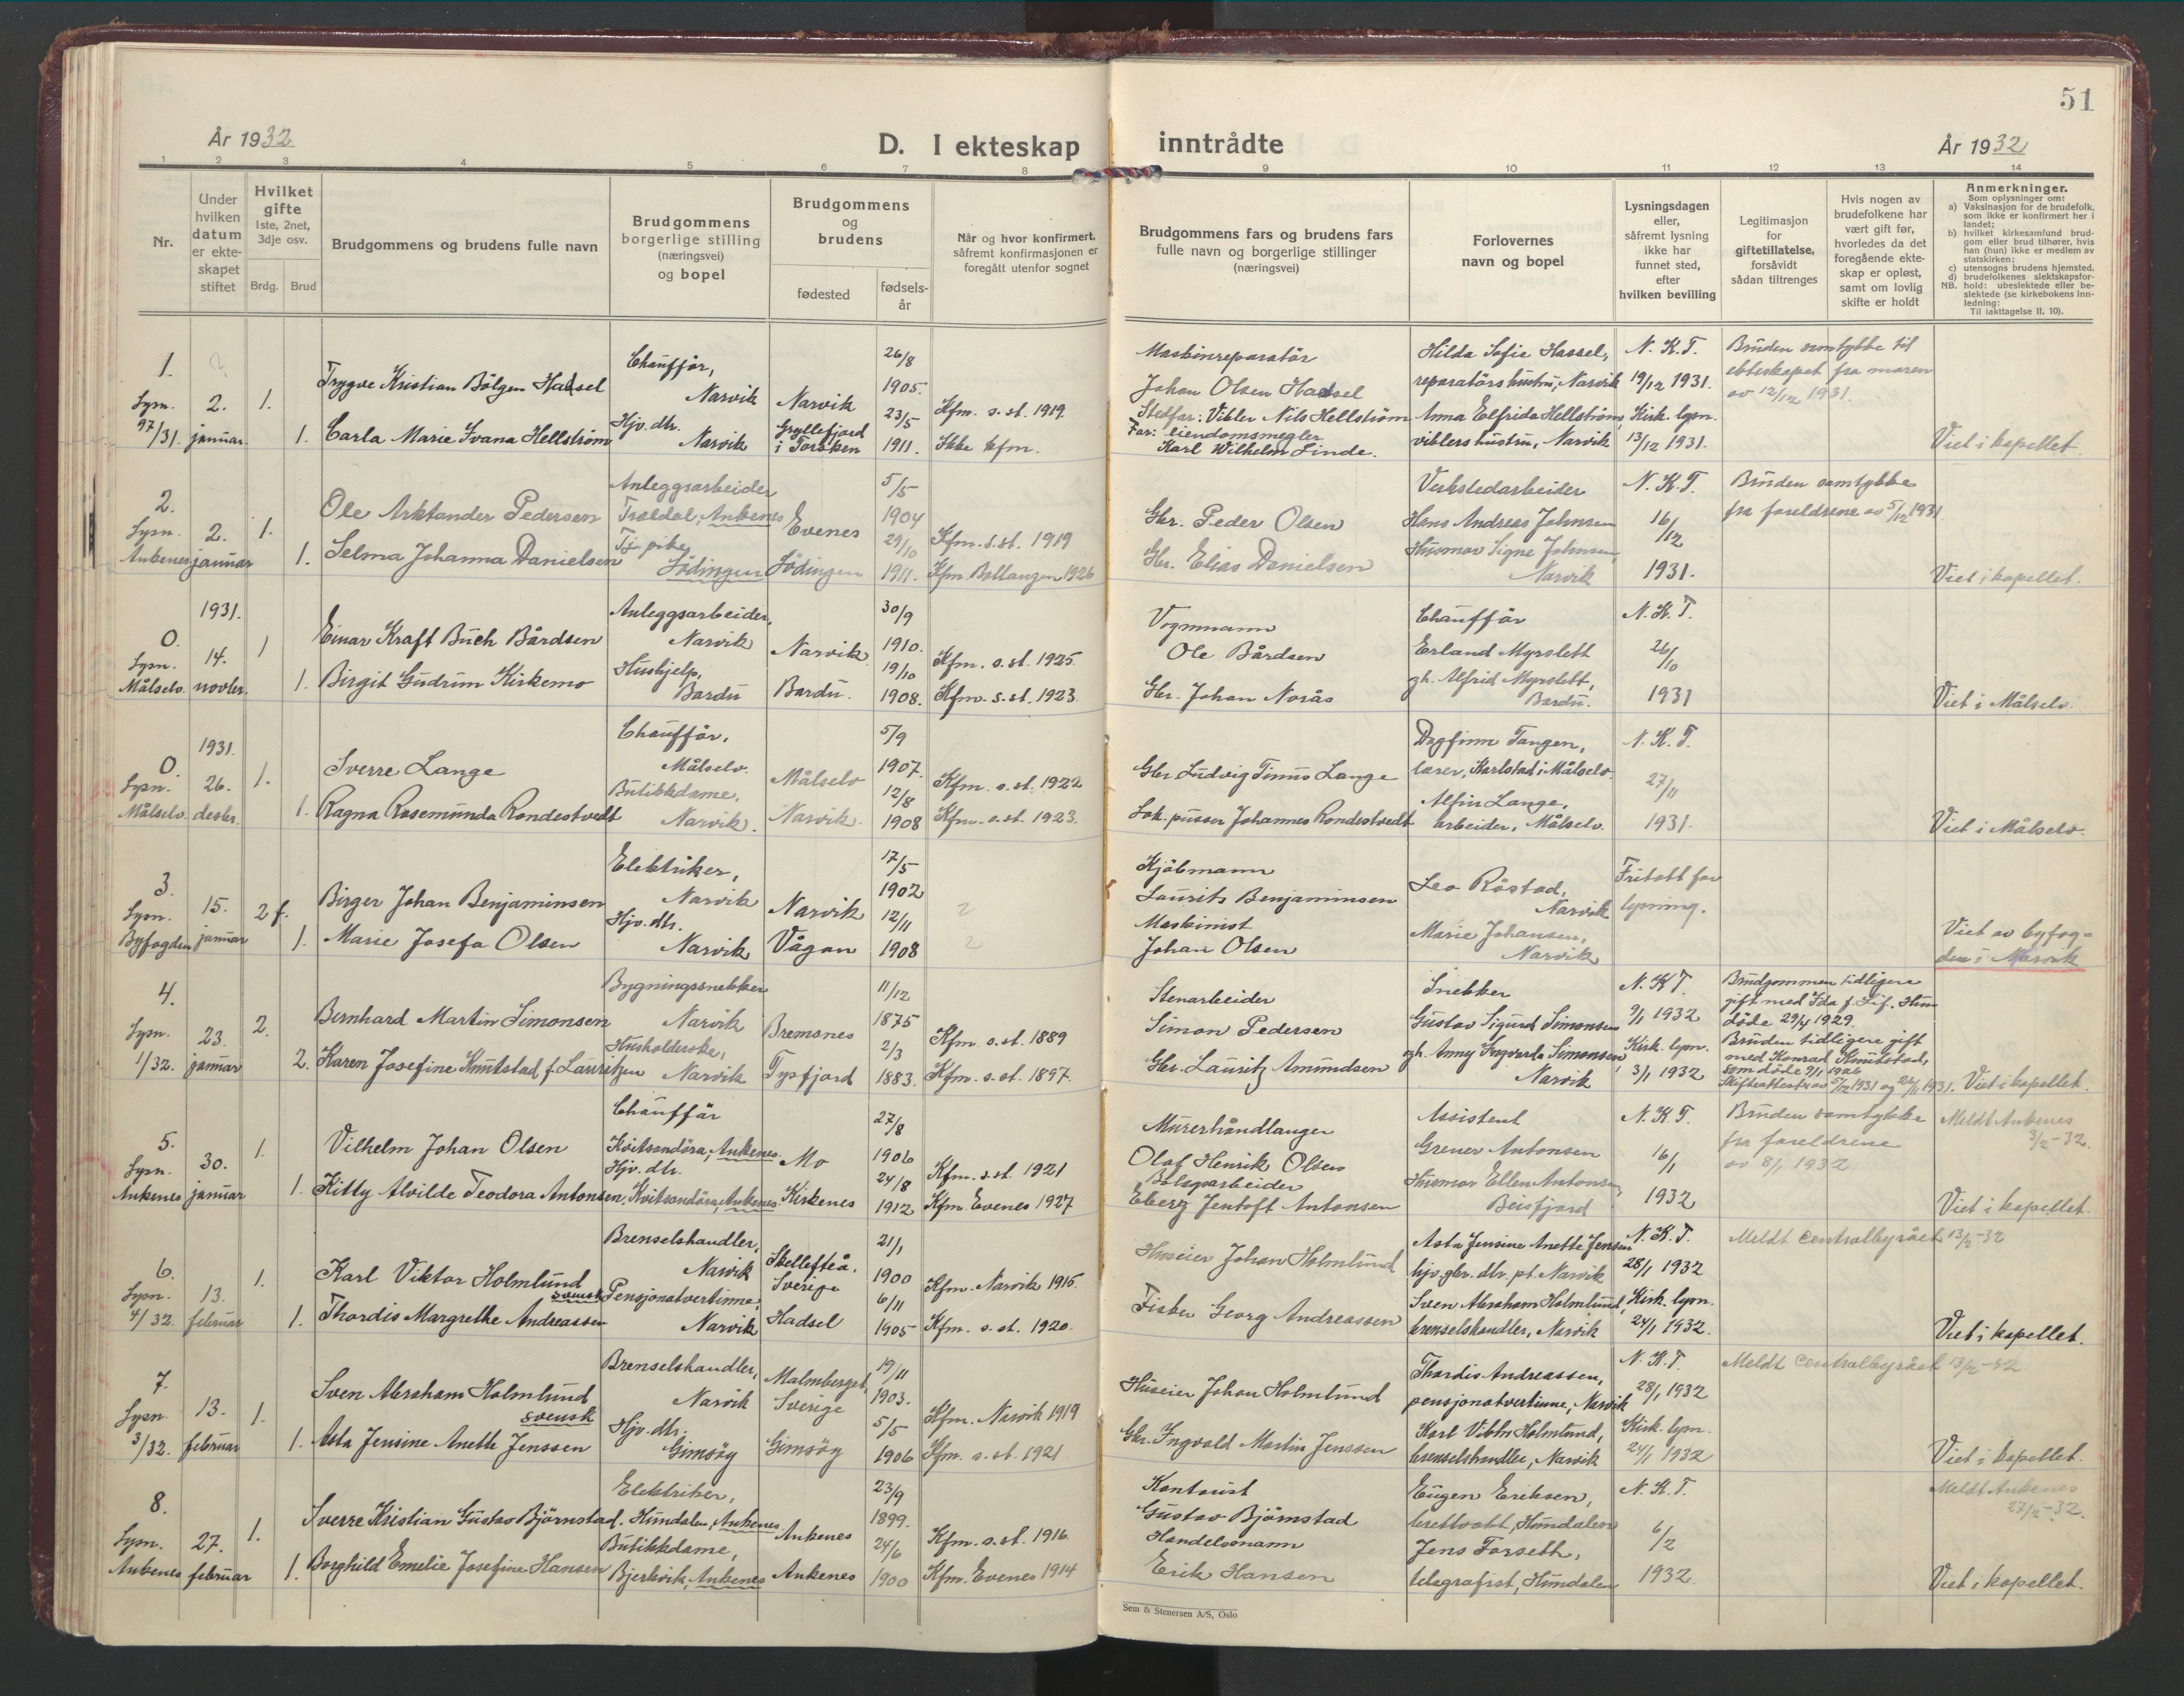 51
År 1932
D. I ekteskap inntrådte
År 1932
1 2 3 4 5 6 7 8 9 10 11 12 13 14
Nr.
Under hvilken datum er ekte-skapet stiftet
Hvilket gifte 1ste, 2net, 3dje osv.
Brdg. Brud
Brudgommens og brudens fulle navn
Brudgommens borgerlige stilling (næringsvei) og bopel
Brudgommens og brudens
fødested
fødsels-år
Når og hvor konfirmert, såfremt konfirmasjonen er foregått utenfor sognet
Brudgommens fars og brudens fars fulle navn og borgerlige stillinger (næringsvei)
Forlovernes navn og bopel
Lysningsdagen eller, såfremt lysning ikke har funnet sted, efter hvilken bevilling
Legitimasjon for giftetillatelse, forsåvidt sådan tiltrenges
Hvis nogen av brudefolkene har vært gift før, hvorledes da det foregående ekte-skap er opløst, samt om lovlig skifte er holdt
Anmerkninger.
Som oplysninger om:
a) Vaksinasjon for de brudefolk, som ikke er konfirmert her i landet;
b) hvilket kirkesamfund brud-gom eller brud tilhører, hvis han (hun) ikke er medlem av statskirken;
c) utensogns brudens hjemsted.
d) brudefolkenes slektskapsfor-
NB. hold: ubeslektede eller be-slektede (se kirkebokens inn-ledning:
Til iakttagelse II. 10).
1. Lysn. 97/31.
2. januar
1.
Trygve Kristian Bölgen Hassel
Chaufför, Narvik
Narvik
26/8 1905.
Kfm. s. st. 1919.
Maskinreparatör Johan Olsen Hassel
Hilda Sofie Hassel, reparatörs hustru, Narvik
N. K. T. 19/12 1931.
Bruden samtykke til ekteskapet fra moren av 12/12 1931.
1. Carla Marie Svana Hellström
Hjv. dtr. Narvik
Gryllefjord i Torsken
23/5 1911.
Ikke kfm.
Stedfar: Vikler Nils Hellström
Far: Eiendomsmegler Karl Wilhelm Linde.
Anna Elfrida Hellström, viklers hustru, Narvik
Kirk. lysn. 13/12 1931.
Viet i kapellet.
2. Lysn. Ankenes
2. januar
1.
Ole Arktander Pedersen
Anleggsarbeider Traldal, Ankenes
Evenes
5/5 1904
Kfm. s. st. 1919
Gbr. Peder Olsen
Verkstedarbeider Hans Andreas Johnsen
N. K. T. 16/12 1931.
Bruden samtykke fra foreldrene av 5/12 1931
1. Selma Johanna Danielsen
Tj. pike Lödingen
Lödingen
29/10 1911.
Kfm. Ballangen 1926
Gbr. Elias Danielsen
Husmor Signe Johnsen, Narvik
Viet i kapellet.
0. Lysn. Målselv.
1931. 14. novbr.
1
Einar Kraft Buch Bårdsen
Anleggsarbeider, Narvik
Narvik
30/9 1910.
Kfm. s. st. 1925.
Vognmann Ole Bårdsen
Chaufför Erland Myrslett
N. K. T. 26/10 1931
1. Birgit Gudrun Kirkemo
Hushjelp, Bardu
Bardu.
19/10 1908.
Kfm. s. st. 1923.
Gbr. Johan Norås
gh. Alfrid Myrslett, Bardu.
Viet i Målselv.
0. Lysn. Målselv.
1931. 26. desbr.
1.
Sverre Lange
Chaufför, Målselv.
Målselv
5/9 1907.
Kfm. s. st. 1922
Gbr Ludvig Tinus Lange
Dagfinn Tangen, lærer, Karlstad i Målselv.
N. K. T. 27/11 1931.
1. Ragna Rosemunda Rondestvedt
Butikkdame, Narvik.
Narvik.
12/8 1908
Kfm. s. st. 1923.
Lok. pusser Johannes Rondestvedt
Alfin Lange, arbeider, Målselv.
Viet i Målselv.
3. Lysn. Byfogden
15. januar
2 f.
Birger Johan Benjaminsen
Elektriker, Narvik
Narvik
17/5 1902
?
Kjöbmann Laurits Benjaminsen
Leo Röstad, Narvik
Fritatt for lysning.
1. Marie Josefa Olsen
Hjv. dtr. Narvik
Vågan
12/11 1908
?
Maskinist Johan Olsen
Marie Johansen, Narvik
Viet av byfog-den i Narvik
4. Lysn. 1/32.
23. januar
2.
Bernhard Martin Simonsen
Bygningssnekker Narvik
Bremsnes
11/12 1875
Kfm s. st. 1889
Stenarbeider Simon Pedersen
Snekker Gustav Sigurd Simonsen
N. K T. 9/1 1932
Brudgommen tidligere gift med Ida f. Lif. Hun döde 29/4 1929.
2. Karen Josefine Knutstad f. Lauritzen
Husholderske, Narvik
Tysfjord
2/3 1883.
Kfm. s. st. 1897.
Gbr. Lauritz Amundsen
gh. Anny Ingvarda Simonsen, Narvik
Kirk. lysn. 3/1 1932
Bruden tidligere gift med Konrad Knutstad, som döde 9/1 1926
Skifteattester av 5/12 1931 og 26/11 1931.
Viet i kapellet.
5. Lysn. Ankenes
30. januar
1.
Vilhelm Johan Olsen
Chaufför Kvitsandöra, Ankenes
Mo
27/8 1906
Kfm. s. st. 1921
Murerhåndlanger Olaf Henrik Olsen
Assistent Grener Antonsen
N. K. T. 16/1 1932
Bruden samtykke fra foreldrene av 8/1 1932.
Meldt Ankenes 3/2-32.
1. Kitty Alvilde Teodora Antonsen,
Hjv. dtr. Kvitsandöra, Ankenes.
Kirkenes
24/8 1912
Kfm. Evenes 1927
Bolagsarbeider Eberg Jentoft Antonsen
Husmor Ellen Antonsen, Beisfjord
Viet i kapellet.
6. Lysn. 4/32.
13. februar
1.
Karl Viktor Holmlund svensk
Brenselshandler, Narvik
Skellefteå, Sverige
21/1 1900
Kfm. Narvik 1915.
Huseier Johan Holmlund
Asta Jensine Anette Jenssen hjv. gbr. dtr. pt. Narvik
N. K. T. 28/1 1932
Meldt Centralbyrået 13/2-32
1. Thordis Margrethe Andreassen
Pensjonatvertinne, Narvik
Hadsel
6/11 1905
Kfm. s. st. 1920.
Fisker Georg Andreassen
Sven Abraham Holmlund, brenselshandler, Narvik
Kirk. lysn. 24/1 1932.
Viet i kapellet.
7. Lysn. 3/32.
13. februar
1.
Sven Abraham Holmlund svensk
Brenselshandler, Narvik
Malmberget, Sverige
19/11 1903.
Kfm. Narvik 1919
Huseier Johan Holmlund
Thordis Andreassen, pensjonatvertinne, Narvik
N. K. T. 28/1 1932
Meldt Centralbyrået 13/2-32.
1. Asta Jensine Anette Jenssen
Hjv. dtr. Gimsöy
Gimsöy
5/5 1906
Kfm. s. st. 1921
Gbr. Ingvald Martin Jenssen
Karl Viktor Holmlund, brenselshandler, Narvik
Kirk. lysn. 24/1 1932
Viet i kapellet.
8. Lysn. Ankenes
27. februar
1.
Sverre Kristian Gustav Björnstad.
Elektriker, Hundalen, Ankenes
Ankenes
23/9 1899.
Kfm. s. st. 1916
Kontorist Gustav Björnstad
Eugen Eriksen, brettvakt, Hundalen
N. K. T. 6/2 1932.
Meldt Ankenes 27/2-32.
1. Borghild Emelie Josefine Hansen
Butikkdame, Bjerkvik, Ankenes
Ankenes
24/6 1900
Kfm. Evenes 1914
Handelsmann Erik Hansen
Jens Forseth, telegrafist, Hundalen
Viet i kapellet.
Sem & Stenersen A/S, Oslo